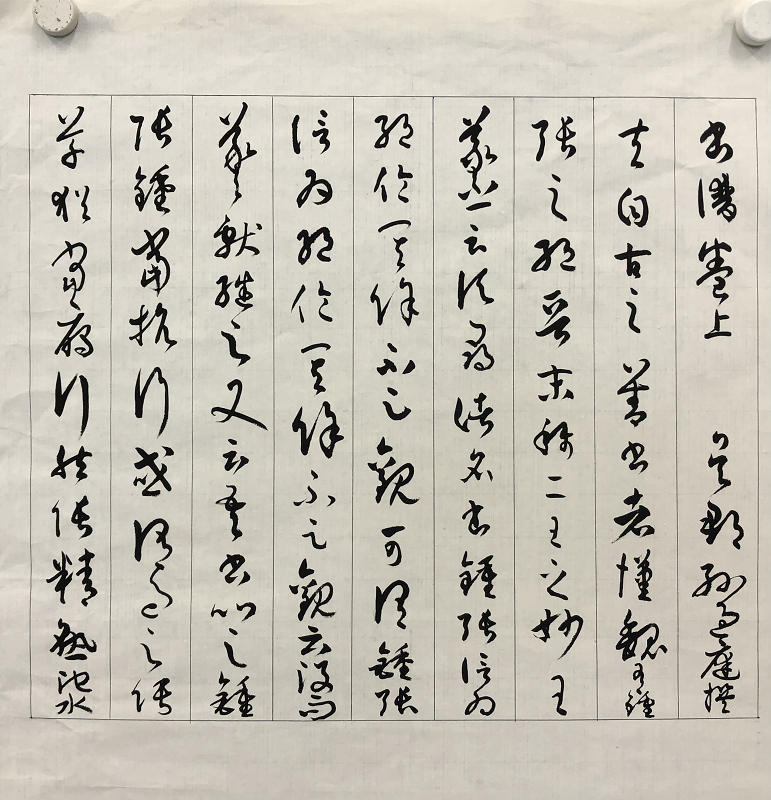 書譜卷上 吳郡孫過庭撰
夫自古之善書者漢魏有鍾
張之絕晉末稱二王之妙王
羲之云頃尋諸名書鍾張信為
絕倫其餘不足觀可謂鍾張
信為絕倫其餘不足觀云沒而
羲獻繼之又云吾書比之鍾
張鍾當抗行或謂過之張
草猶當鴈行然張精熟池水